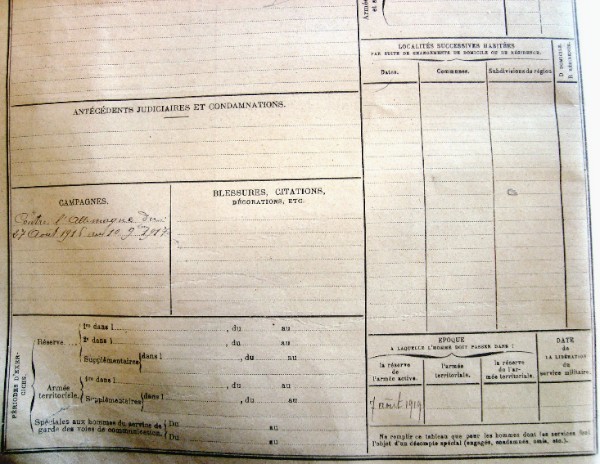 Armée
et s
LOCALITÉS SUCCESSIVES HABITÉES
PAR SUITE DE CHANGEMENTS DE DOMICILE OU DE RÉSIDENCE.
Dates. Communes. Subdivisions de région D. DOMICILE. R. RÉSIDENCE.
ANTÉCÉDENTS JUDICIAIRES ET CONDAMNATIONS.
CAMPAGNES.
Contre l'Allemagne du
BLESSURES, CITATIONS,
DÉCORATIONS, ETC.
PÉRIODES D'EXERCICES.
Réserve.... 1re dans l , du au
2e dans l , du au
Supplémentaires dans l , du au
Armée territoriale. 1re dans l , du au
Supplémentaires dans l , du au
Spéciales aux hommes du service de Du au
garde des voies de communication. Du au
EPOQUE
A LAQUELLE L'HOMME DOIT PASSER DANS :
la réserve de l'armée active. l'armée territoriale. la réserve de l'armée territoriale.
DATE
de
LA LIBÉRATION
du service militaire.
7 août 1919
Ne remplir ce tableau que pour les hommes dont les services font
l'objet d'un décompte spécial (engagés, condamnés, omis, etc.).